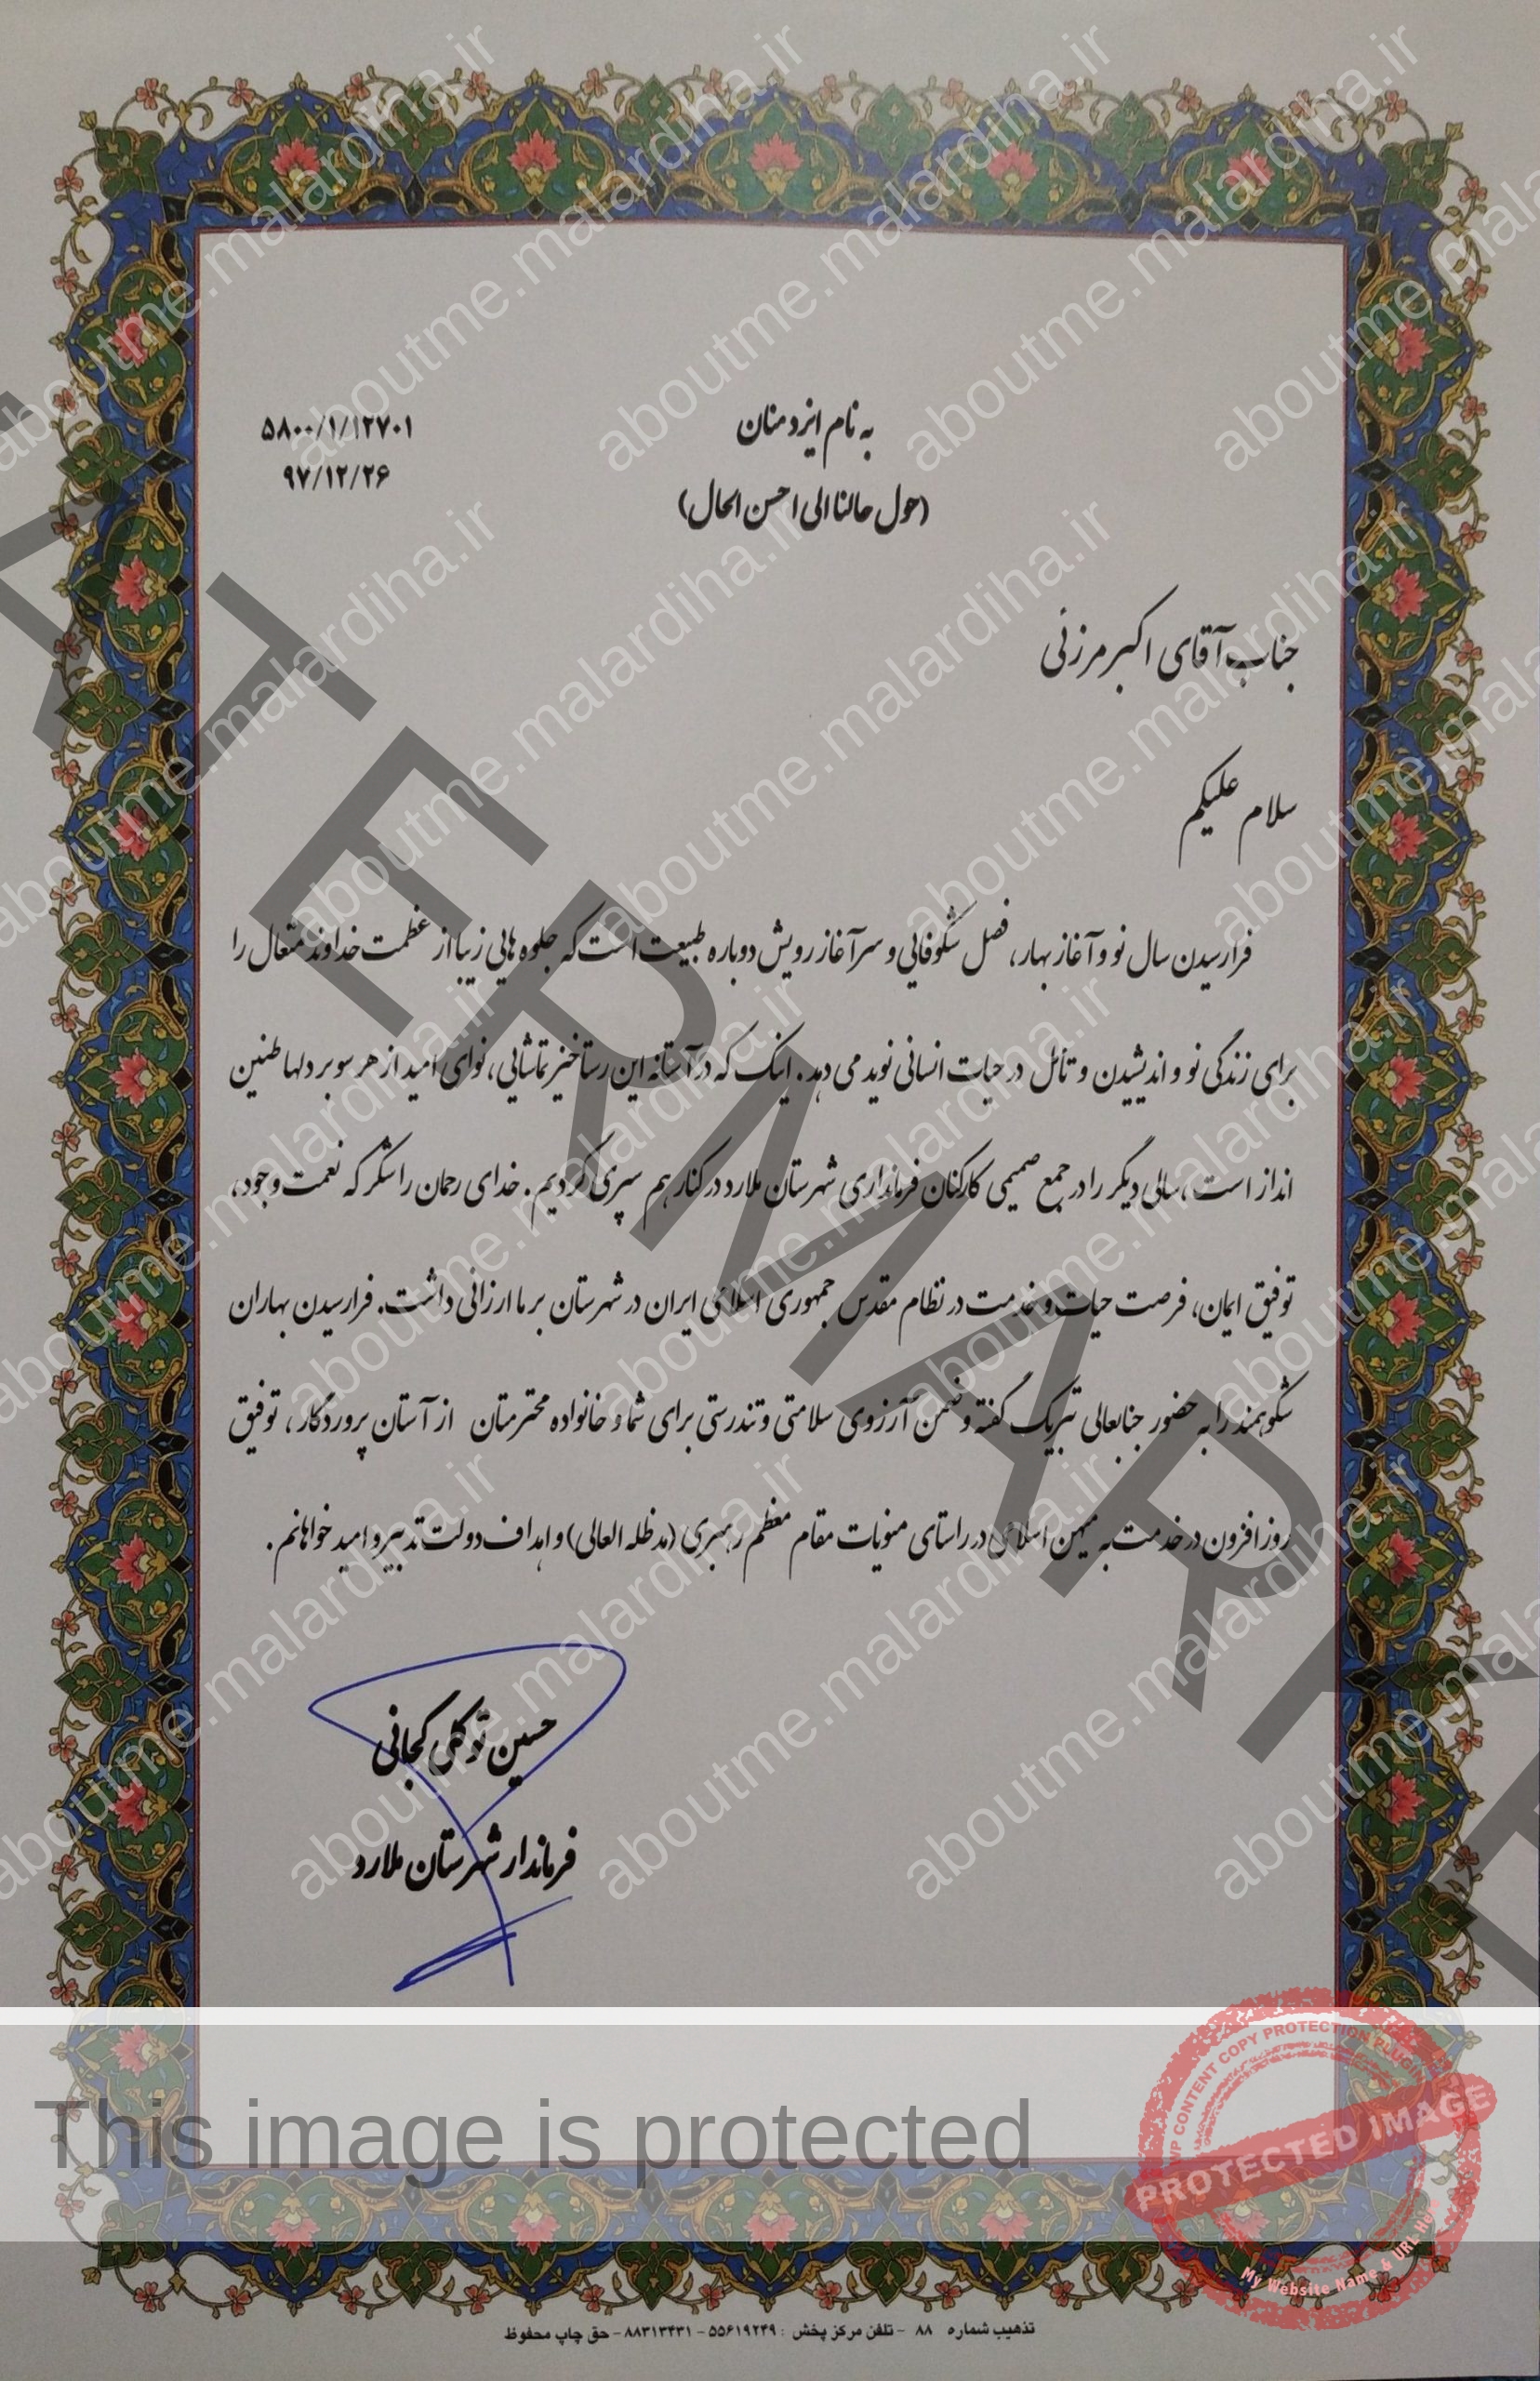 به نام ایزد منان
۵۸۰۰/۱/۱۲۷۰۱
(حول حالنا الی احسن الحال)
۹۷/۱۲/۲۶
جناب آقای اکبر مرزنی
سلام علیکم
فرارسیدن سال نو و آغاز بهار، فصل شکوفایی و سرآغاز رویش دوباره طبیعت است که جلوه هایی زیبا از عظمت خداوند متعال را
برای زندگی نو و اندیشیدن و تأمل در حیات انسانی نوید می دهد. اینک که در آستانه این رستاخیز تماشایی، نوای امید از هر سو بر دلها طنین
انداز است، سالی دیگر را در جمع صمیمی کارکنان فرمانداری شهرستان ملارد در کنار هم سپری کردیم. خدای رحمان را شکر که نعمت وجود،
توفیق ایمان، فرصت حیات و خدمت در نظام مقدس جمهوری اسلامی ایران در شهرستان بر ما ارزانی داشت. فرارسیدن بهاران
شکوهمند را به حضور جنابعالی تبریک گفته و ضمن آرزوی سلامتی و تندرستی برای شما و خانواده محترمتان از آستان پروردگار، توفیق
روزافزون در خدمت به میهن اسلامی در راستای منویات مقام معظم رهبری (مدظله العالی) و اهداف دولت تدبیر و امید خواهانم.
حسین توکلی کجانی
فرماندار شهرستان ملارد
This image is protected
WP CONTENT COPY PROTECTION PLUGIN
PROTECTED IMAGE
My Website Name & URL Here
تذهیب شماره ۸۸ - تلفن مرکز پخش : ۵۵۶۱۹۲۴۹ - ۸۸۳۱۳۴۳۱ - حق چاپ محفوظ
WATERMARK
aboutme.malardiha.ir